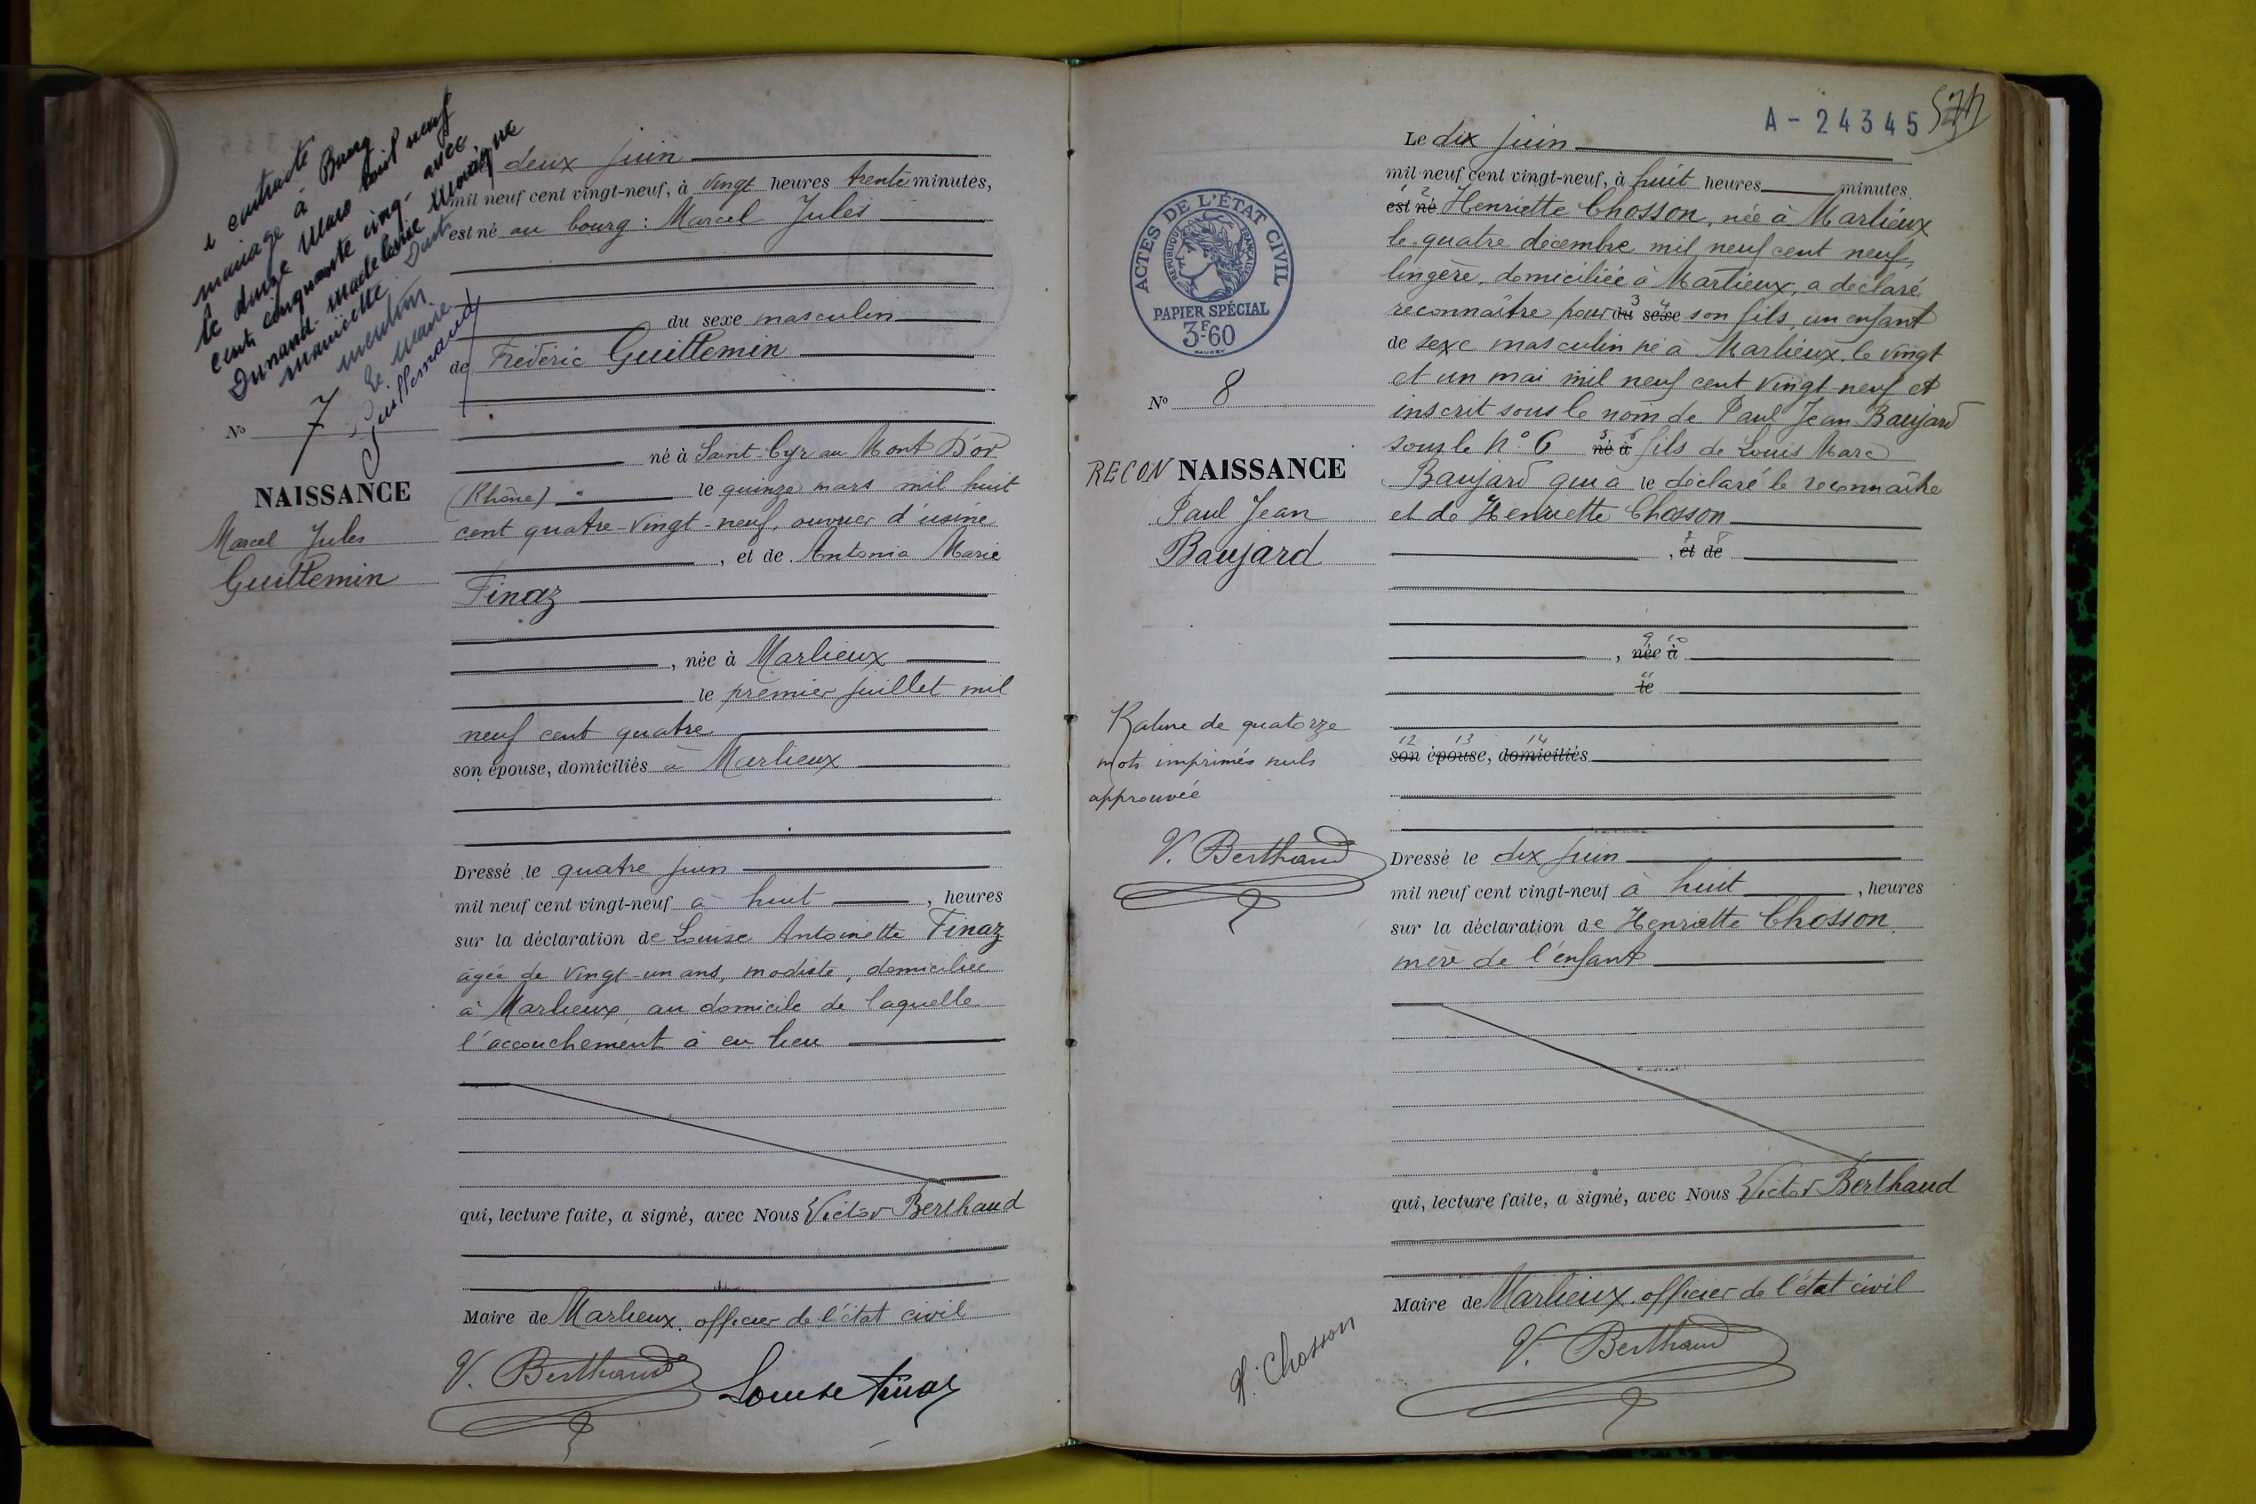 a contracté
mariage à Bourg
le douze Mars mil neuf
cent cinquante cinq avec
Durand Madeleine Monique
Mauricette Dont
mention.
Le Maire
Guillemaud
N° 7
NAISSANCE
Marcel Jules
Guillemin
deux juin
mil neuf cent vingt-neuf, à vingt heures trente minutes,
est né au bourg : Marcel Jules
du sexe masculin
de Frédéric Guillemin
né à Saint-Cyr au Mont D'or
(Rhône) le quinze mars mil huit
cent quatre-vingt-neuf, ouvrier d'usine
, et de Antonia Marie
Finaz
, née à Marlieux
le premier juillet mil
neuf cent quatre
son épouse, domiciliés à Marlieux
Dressé le quatre juin
mil neuf cent vingt-neuf à huit , heures
sur la déclaration de Louise Antoinette Finaz
âgée de vingt-un ans, modiste, domiciliée
à Marlieux, au domicile de laquelle
l'accouchement à eu lieu
qui, lecture faite, a signé, avec Nous Victor Berthaud
Maire de Marlieux, officier de l'état civil
V. Berthaud Louise Finaz
A - 24345
ACTES DE L'ÉTAT CIVIL
RÉPUBLIQUE FRANÇAISE
PAPIER SPÉCIAL
3F60
N° 8
RECON NAISSANCE
Paul Jean
Baujard
Rature de quatorze
mots imprimés nuls
approuvée
V. Berthaud
Le dix juin
mil neuf cent vingt-neuf, à huit heures minutes
1 2
est né Henriette Chosson, née à Marlieux
le quatre décembre mil neuf cent neuf,
lingère, domiciliée à Marlieux, a déclaré
3 4
reconnaître pour du sexe son fils, un enfant
de sexe masculin né à Marlieux, le vingt
et un mai mil neuf cent vingt-neuf et
inscrit sous le nom de Paul Jean Baujard
5 6
sous le N° 6 né à fils de Louis Marc
Baujard qui a le déclaré le reconnaître
et de Henriette Chosson
7 8
, et de
9 10
, née à
11
le
12 13 14
son épouse, domiciliés
Dressé le dix juin
mil neuf cent vingt-neuf à huit , heures
sur la déclaration de Henriette Chosson,
mère de l'enfant
qui, lecture faite, a signé, avec Nous Victor Berthaud
Maire de Marlieux, officier de l'état civil
H. Chosson
V. Berthaud